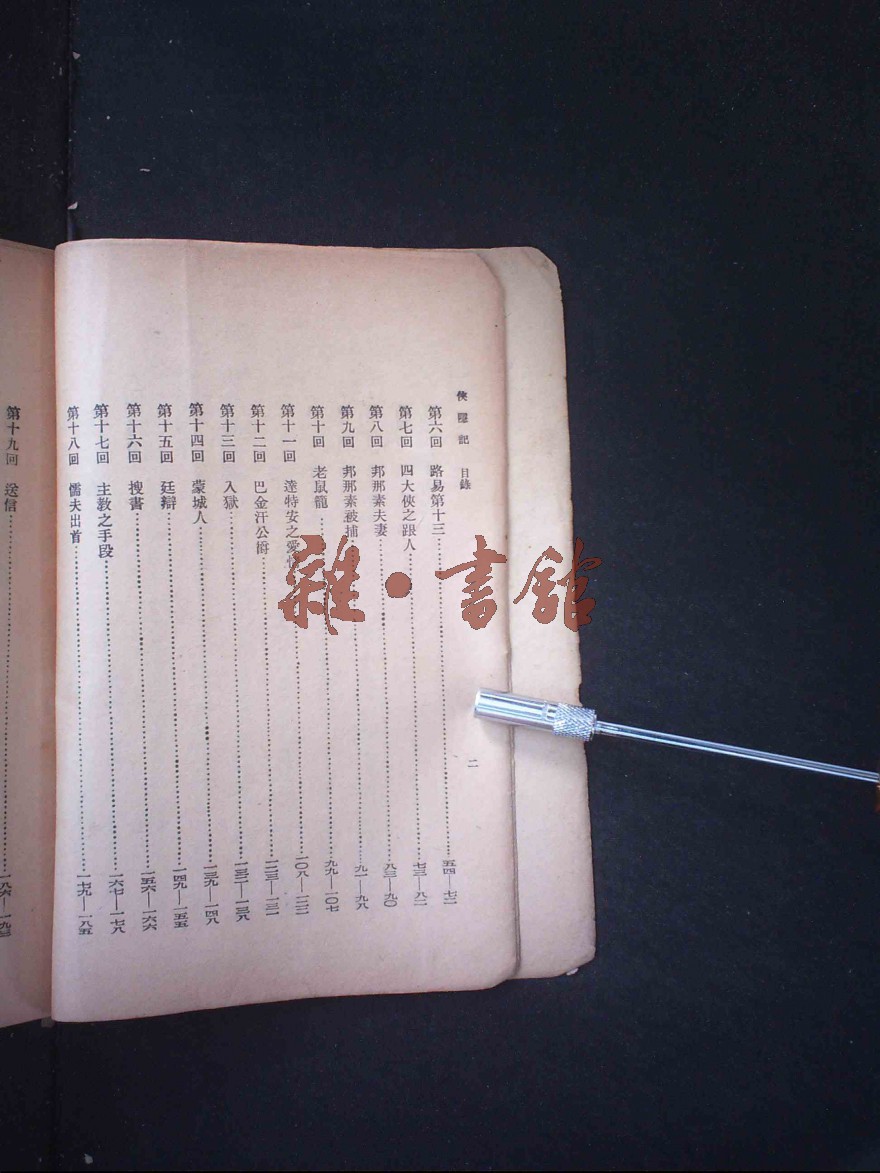 俠隱記 目錄
二
第六回 路易第十三 五四—七二
第七回 四大俠之跟人 七三—八二
第八回 邦那素夫妻 八三—九〇
第九回 邦那素被捕 九一—九八
第十回 老鼠籠 九九—一〇七
第十一回 達特安之愛情 一〇八—一二二
第十二回 巴金汗公爵 一二三—一三一
第十三回 入獄 一三二—一三八
第十四回 蒙城人 一三九—一四八
第十五回 廷辯 一四九—一五五
第十六回 搜書 一五六—一六六
第十七回 主教之手段 一六七—一七八
第十八回 懦夫出首 一七九—一八五
第十九回 送信 一八六—一九三
雜·書館